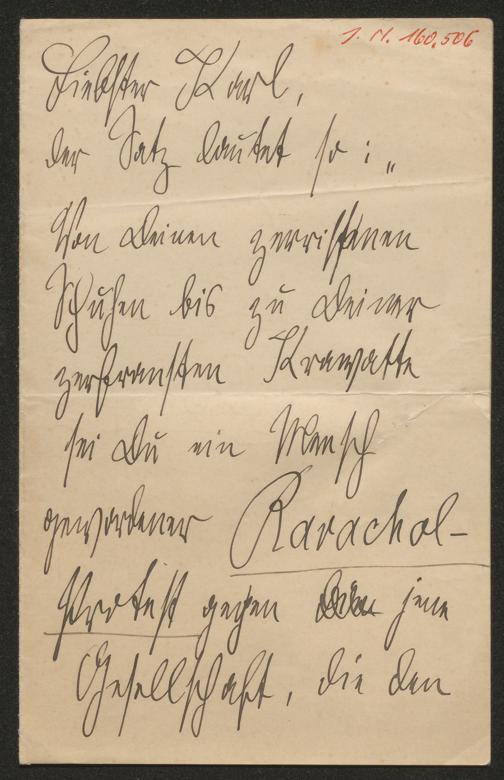 I. N. 160.506
Liebster Karl,
der Satz lautet so: „
Von Deinen zerrissenen
Schuhen bis zu Deiner
zerfransten Krawatte
sei Du ein Mensch
gewordener Ravachol-
Protest gegen jene
Gesellschaft, die den